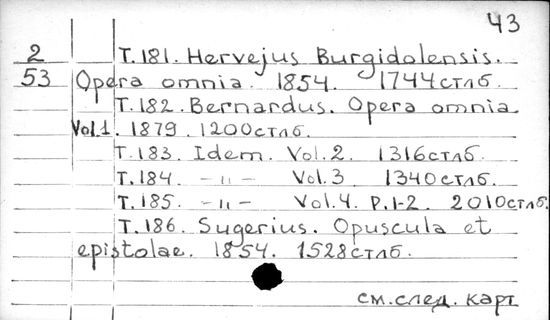 43
2 T.181. Hervejus Burgidolensis.
53 Opera omnia. 1854. 1744стлб.
T.182. Bernardus. Opera omnia
Vol.1. 1879. 1200стлб.
T.183. Idem. Vol.2. 1316стлб.
T.184 -〃- Vol.3 1340стлб.
T.185. -〃- Vol.4. P.1-2. 2010стлб.
T.186. Sugerius. Opuscula et
epistolae. 1854. 1528стлб.
см.след. карт